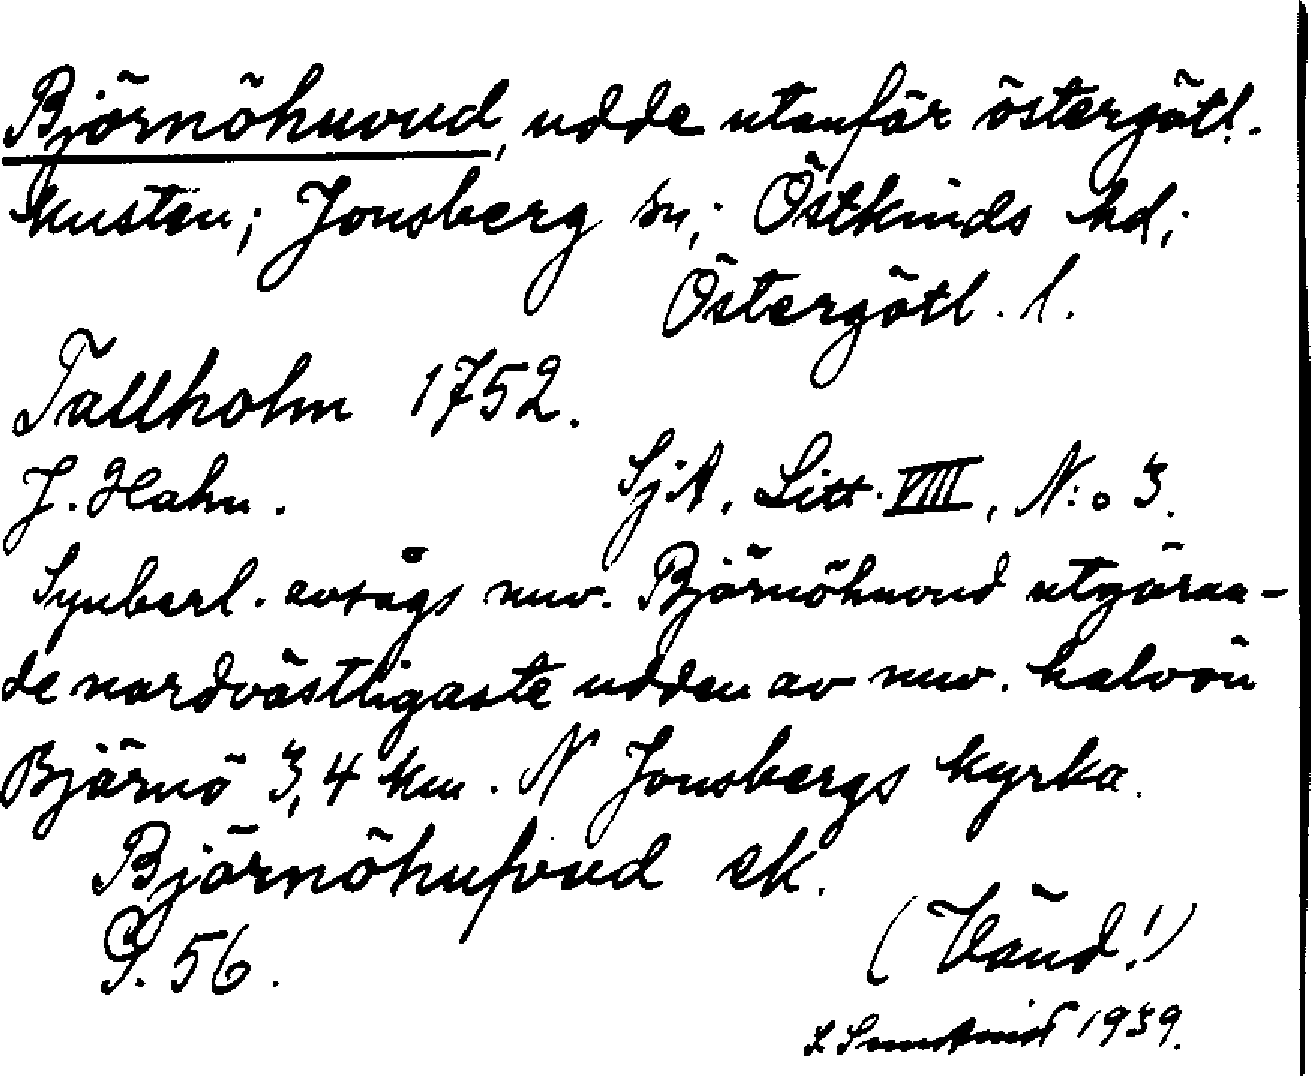 Björnöhuvud, udde utanför östergötl.
kusten; Jonsberg sn; Östkinds hd;
Östergötl. l.
Tallholm 1752.
J. Hahn. SjA, Litt. VIII, N:o 3.
Synbarl. avsågs nuv. Björnöhuvud utgöran-
de nordvästligaste udden av nuv. halvön
Björnö 3,4 km. N Jonsbergs kyrka.
Björnöhufvud ek.
G. 56.
(Vänd!)
1939.